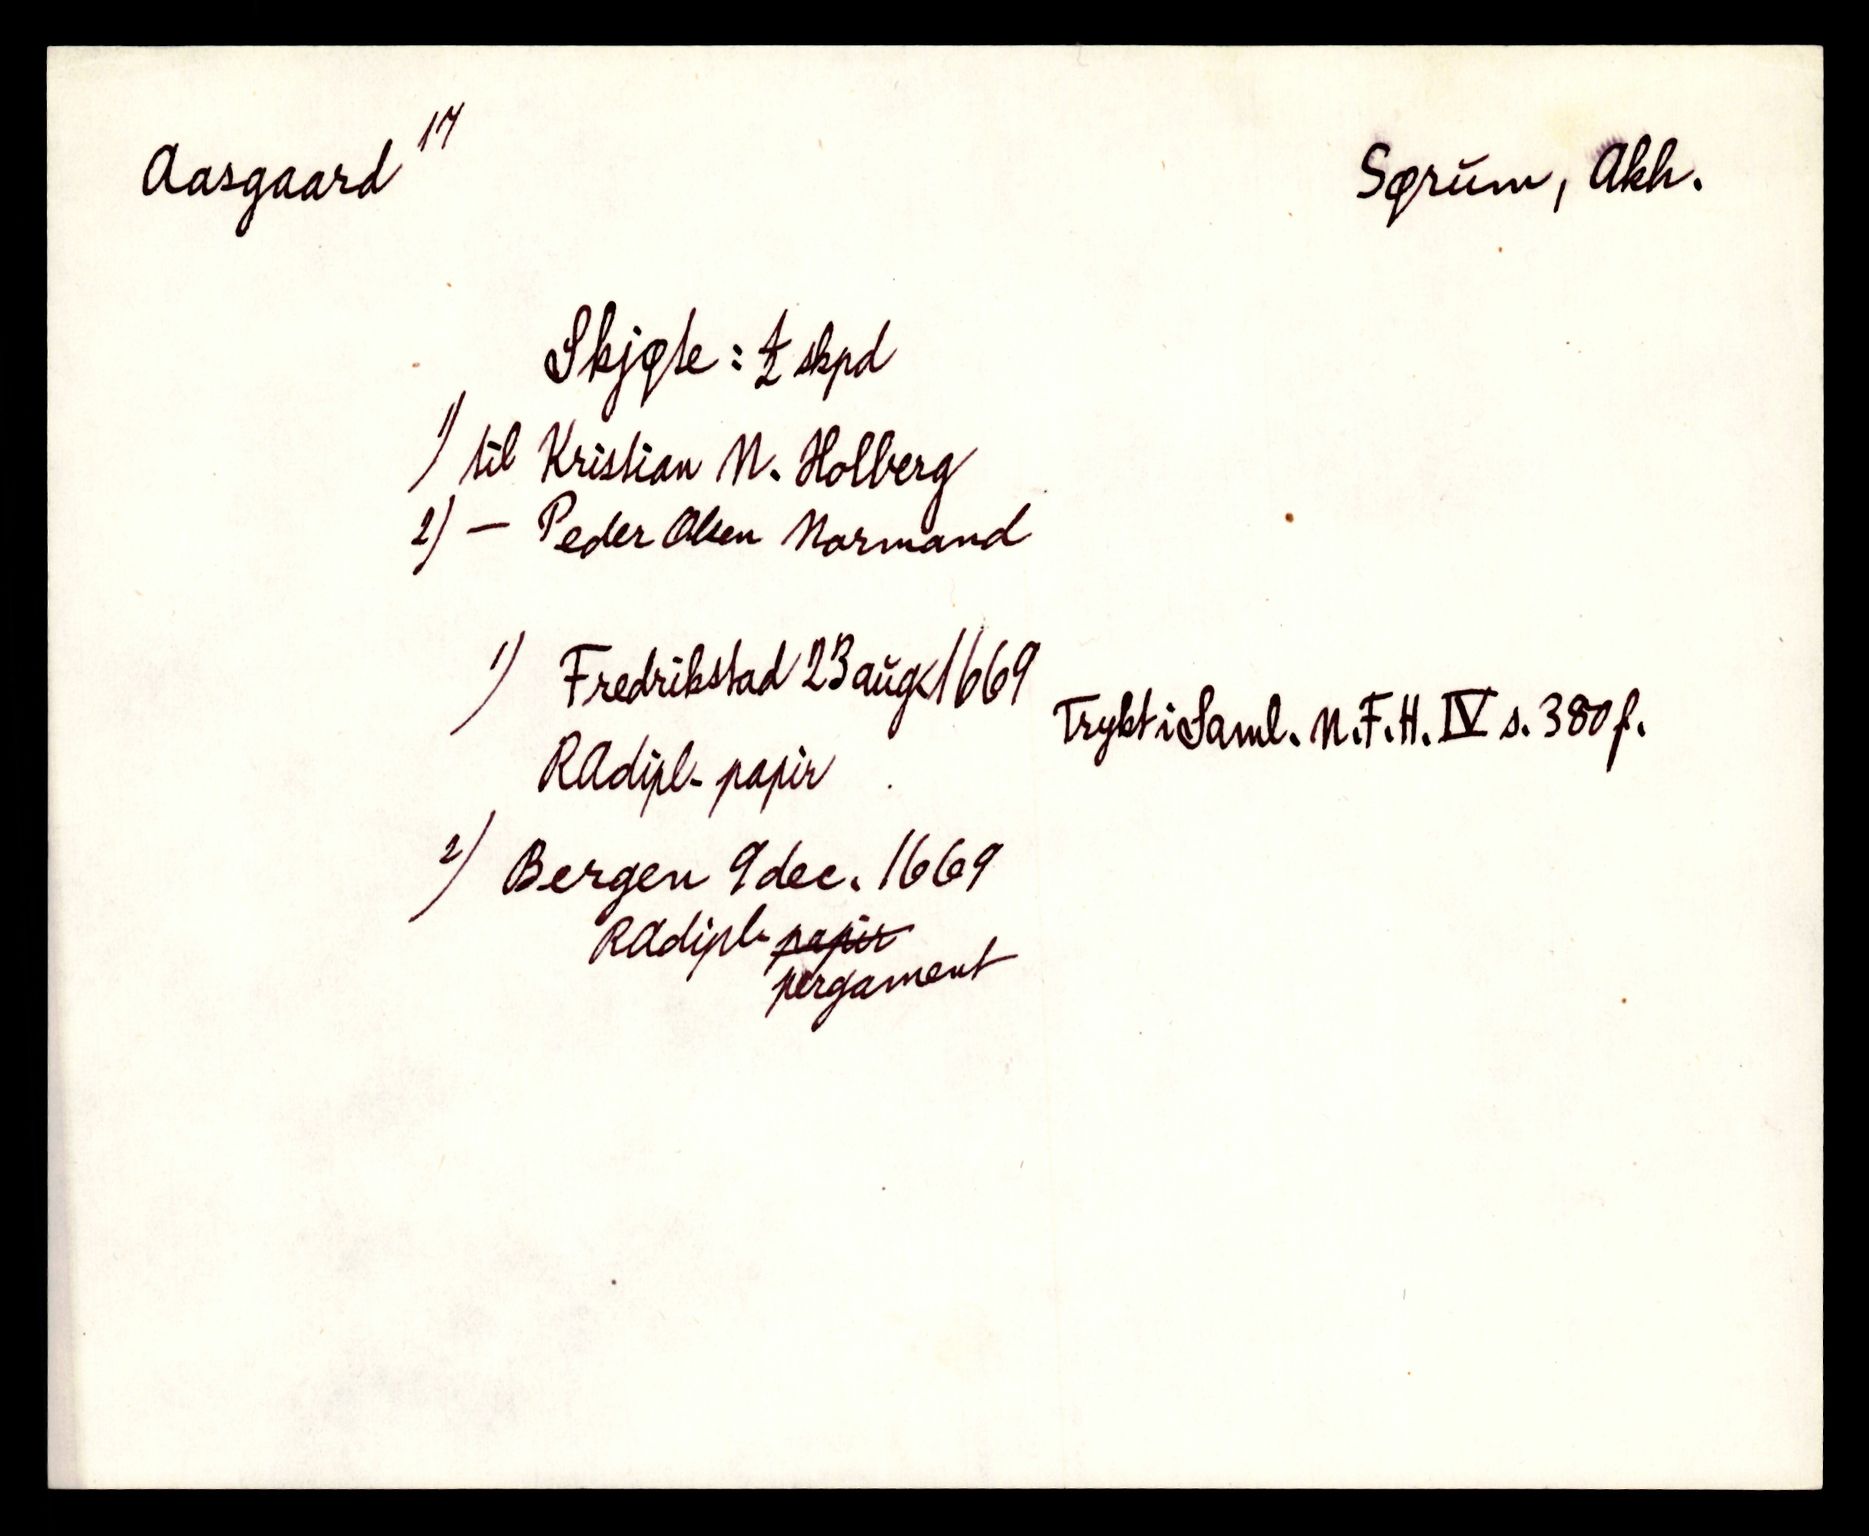 Aasgaard 17
Sørum, Akh.
Skjøte: ½ skpd
1) til Kristian N. Holberg
2) — Peder Olsen Normand
1) Fredrikstad 23 aug. 1669
Trykt i Saml. N.F.H. IV s. 380 f.
RAdipl. papir
2) Bergen 9 dec. 1669
RAdipl. papir
pergament